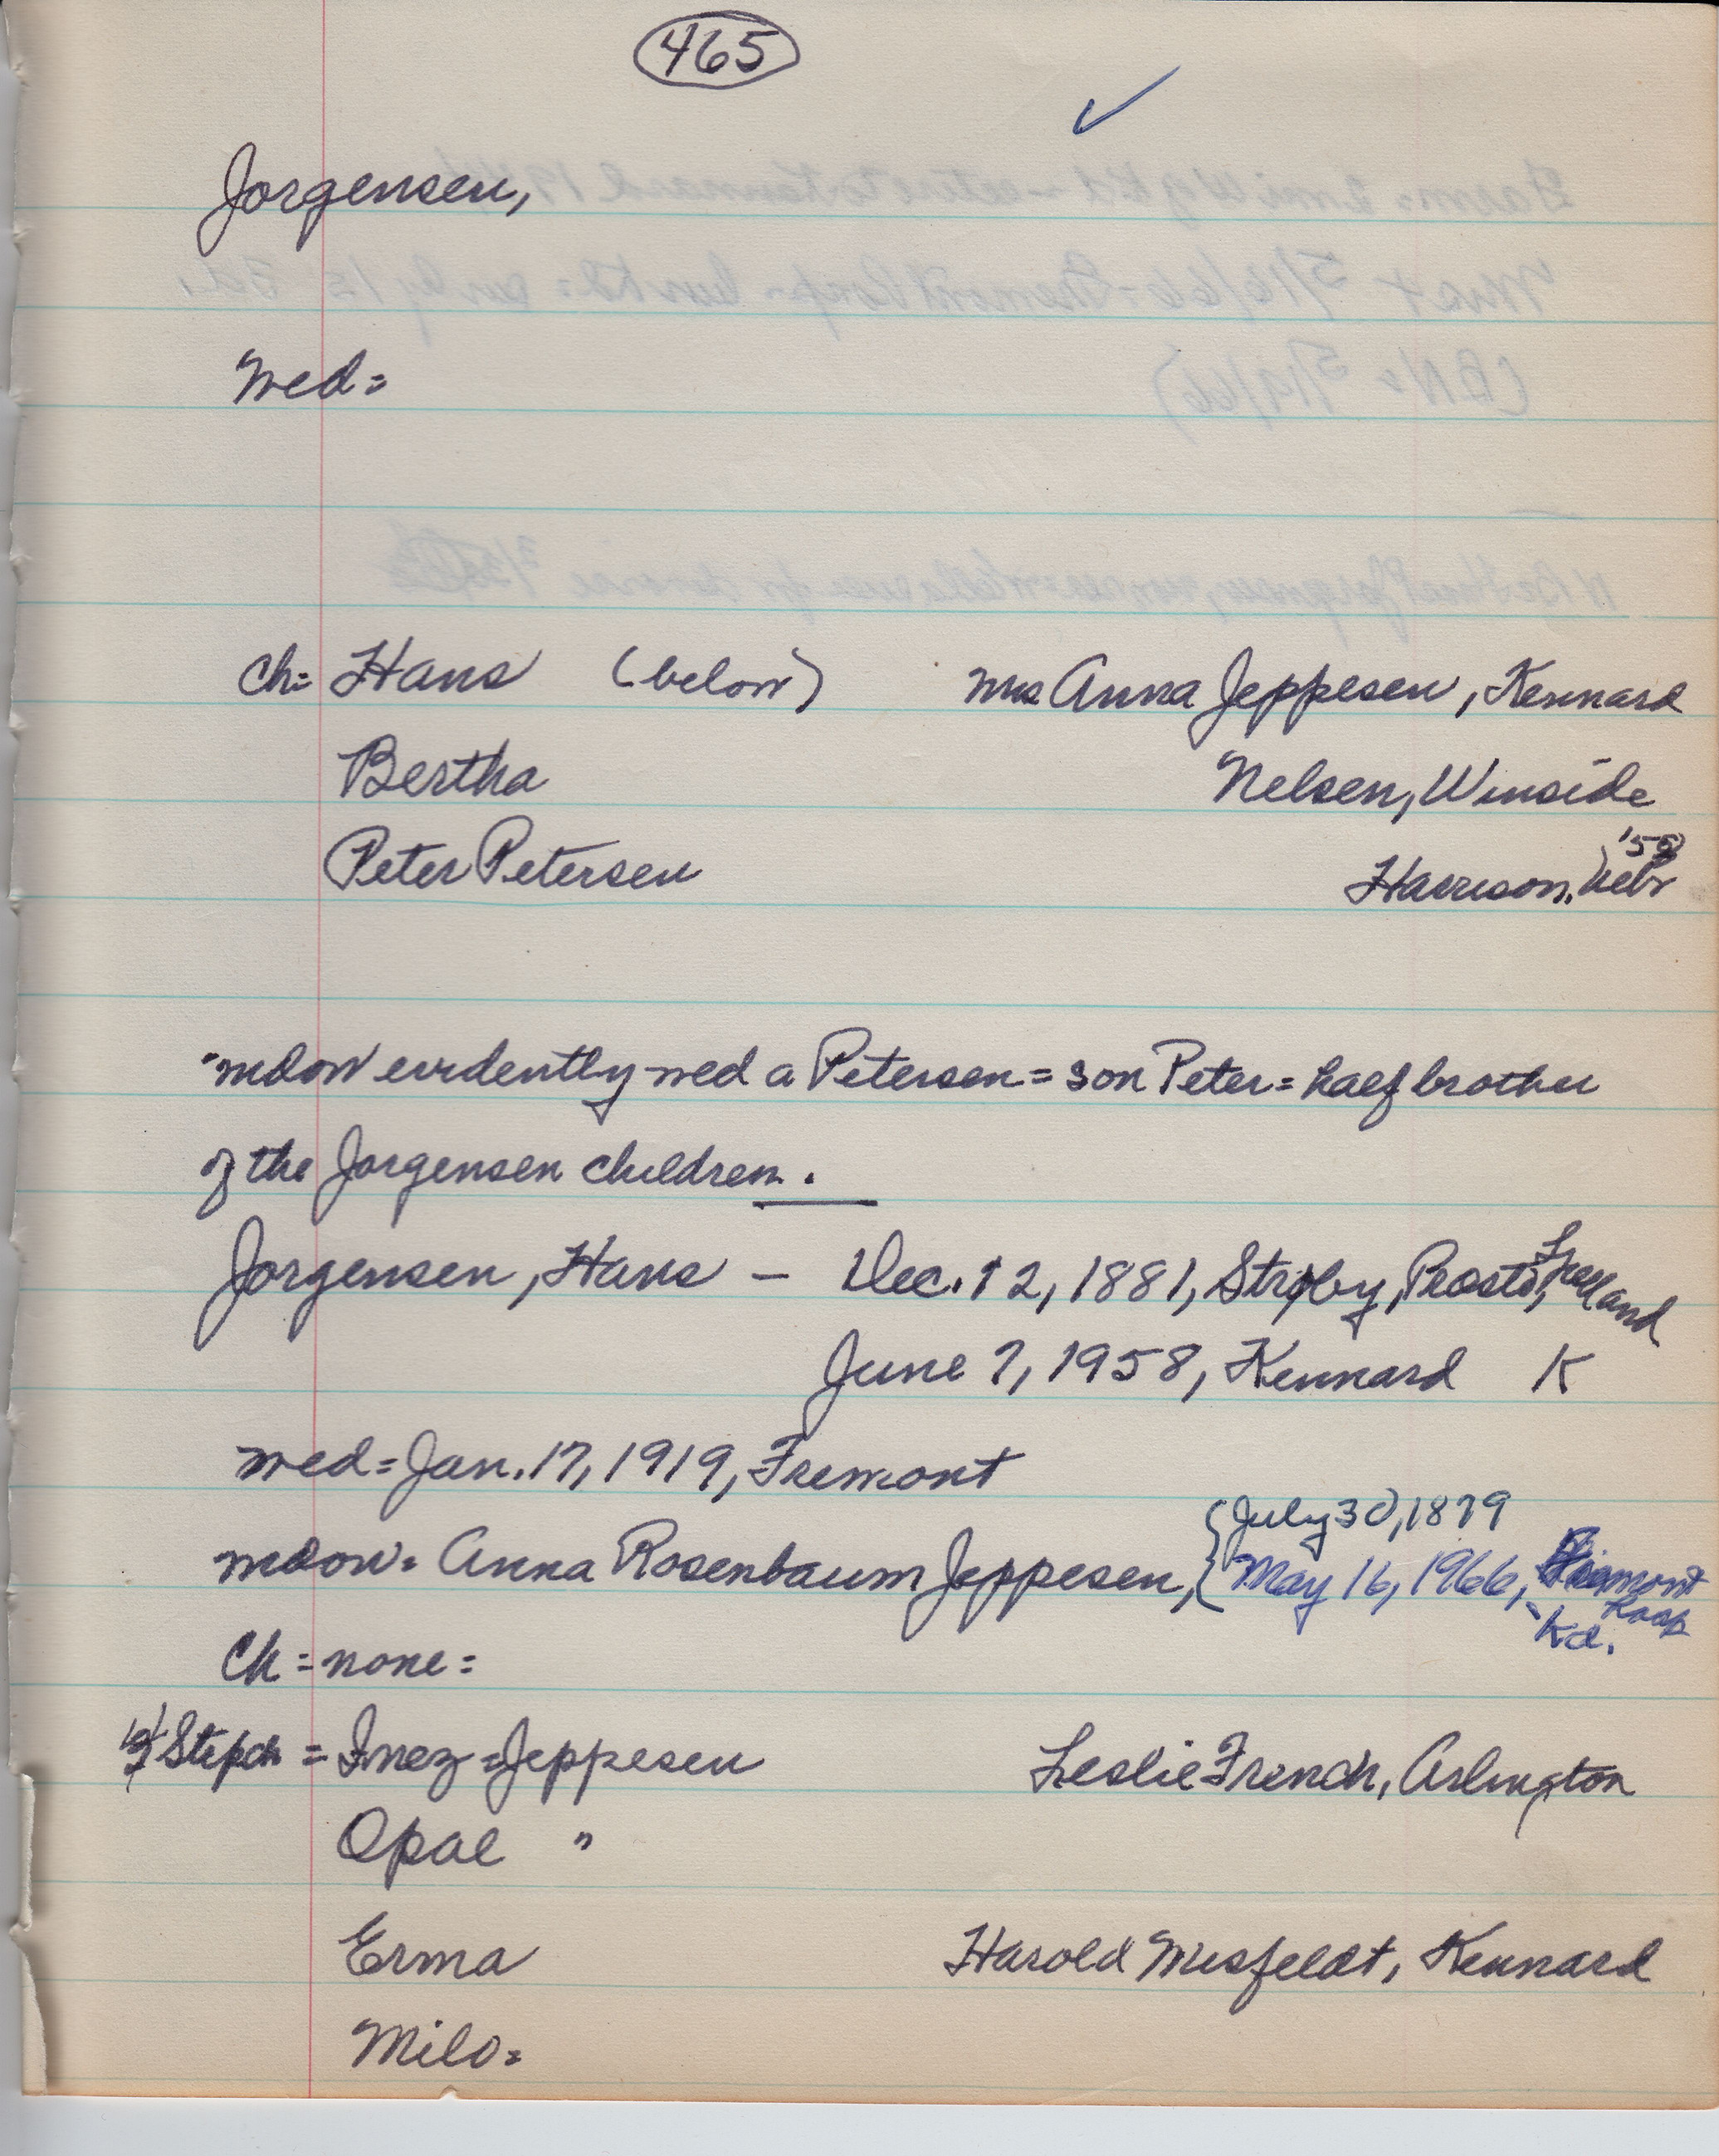 465
✓
Jorgensen,
Wed=
Ch= Hans (below) Mrs Anna Jeppesen, Kennard
Bertha Nelsen, Winside
Peter Petersen Harrison, Nebr '58
"Wdow evidently wed a Petersen = son Peter = half brother
of the Jorgensen children.
Jorgensen, Hans — Dec. 12, 1881, Strøby, Præstø, Sjælland
June 7, 1958, Kennard K
wed = Jan. 17, 1919, Fremont
wdow = Anna Rosenbaum Jeppesen, { July 30, 1879
{ May 16, 1966, Fremont
Hosp
Kd.
Ch = none =
Stepch = Inez = Jeppesen Leslie French, Arlington
Opal "
Erma Harold Misfeldt, Kennard
Milo =